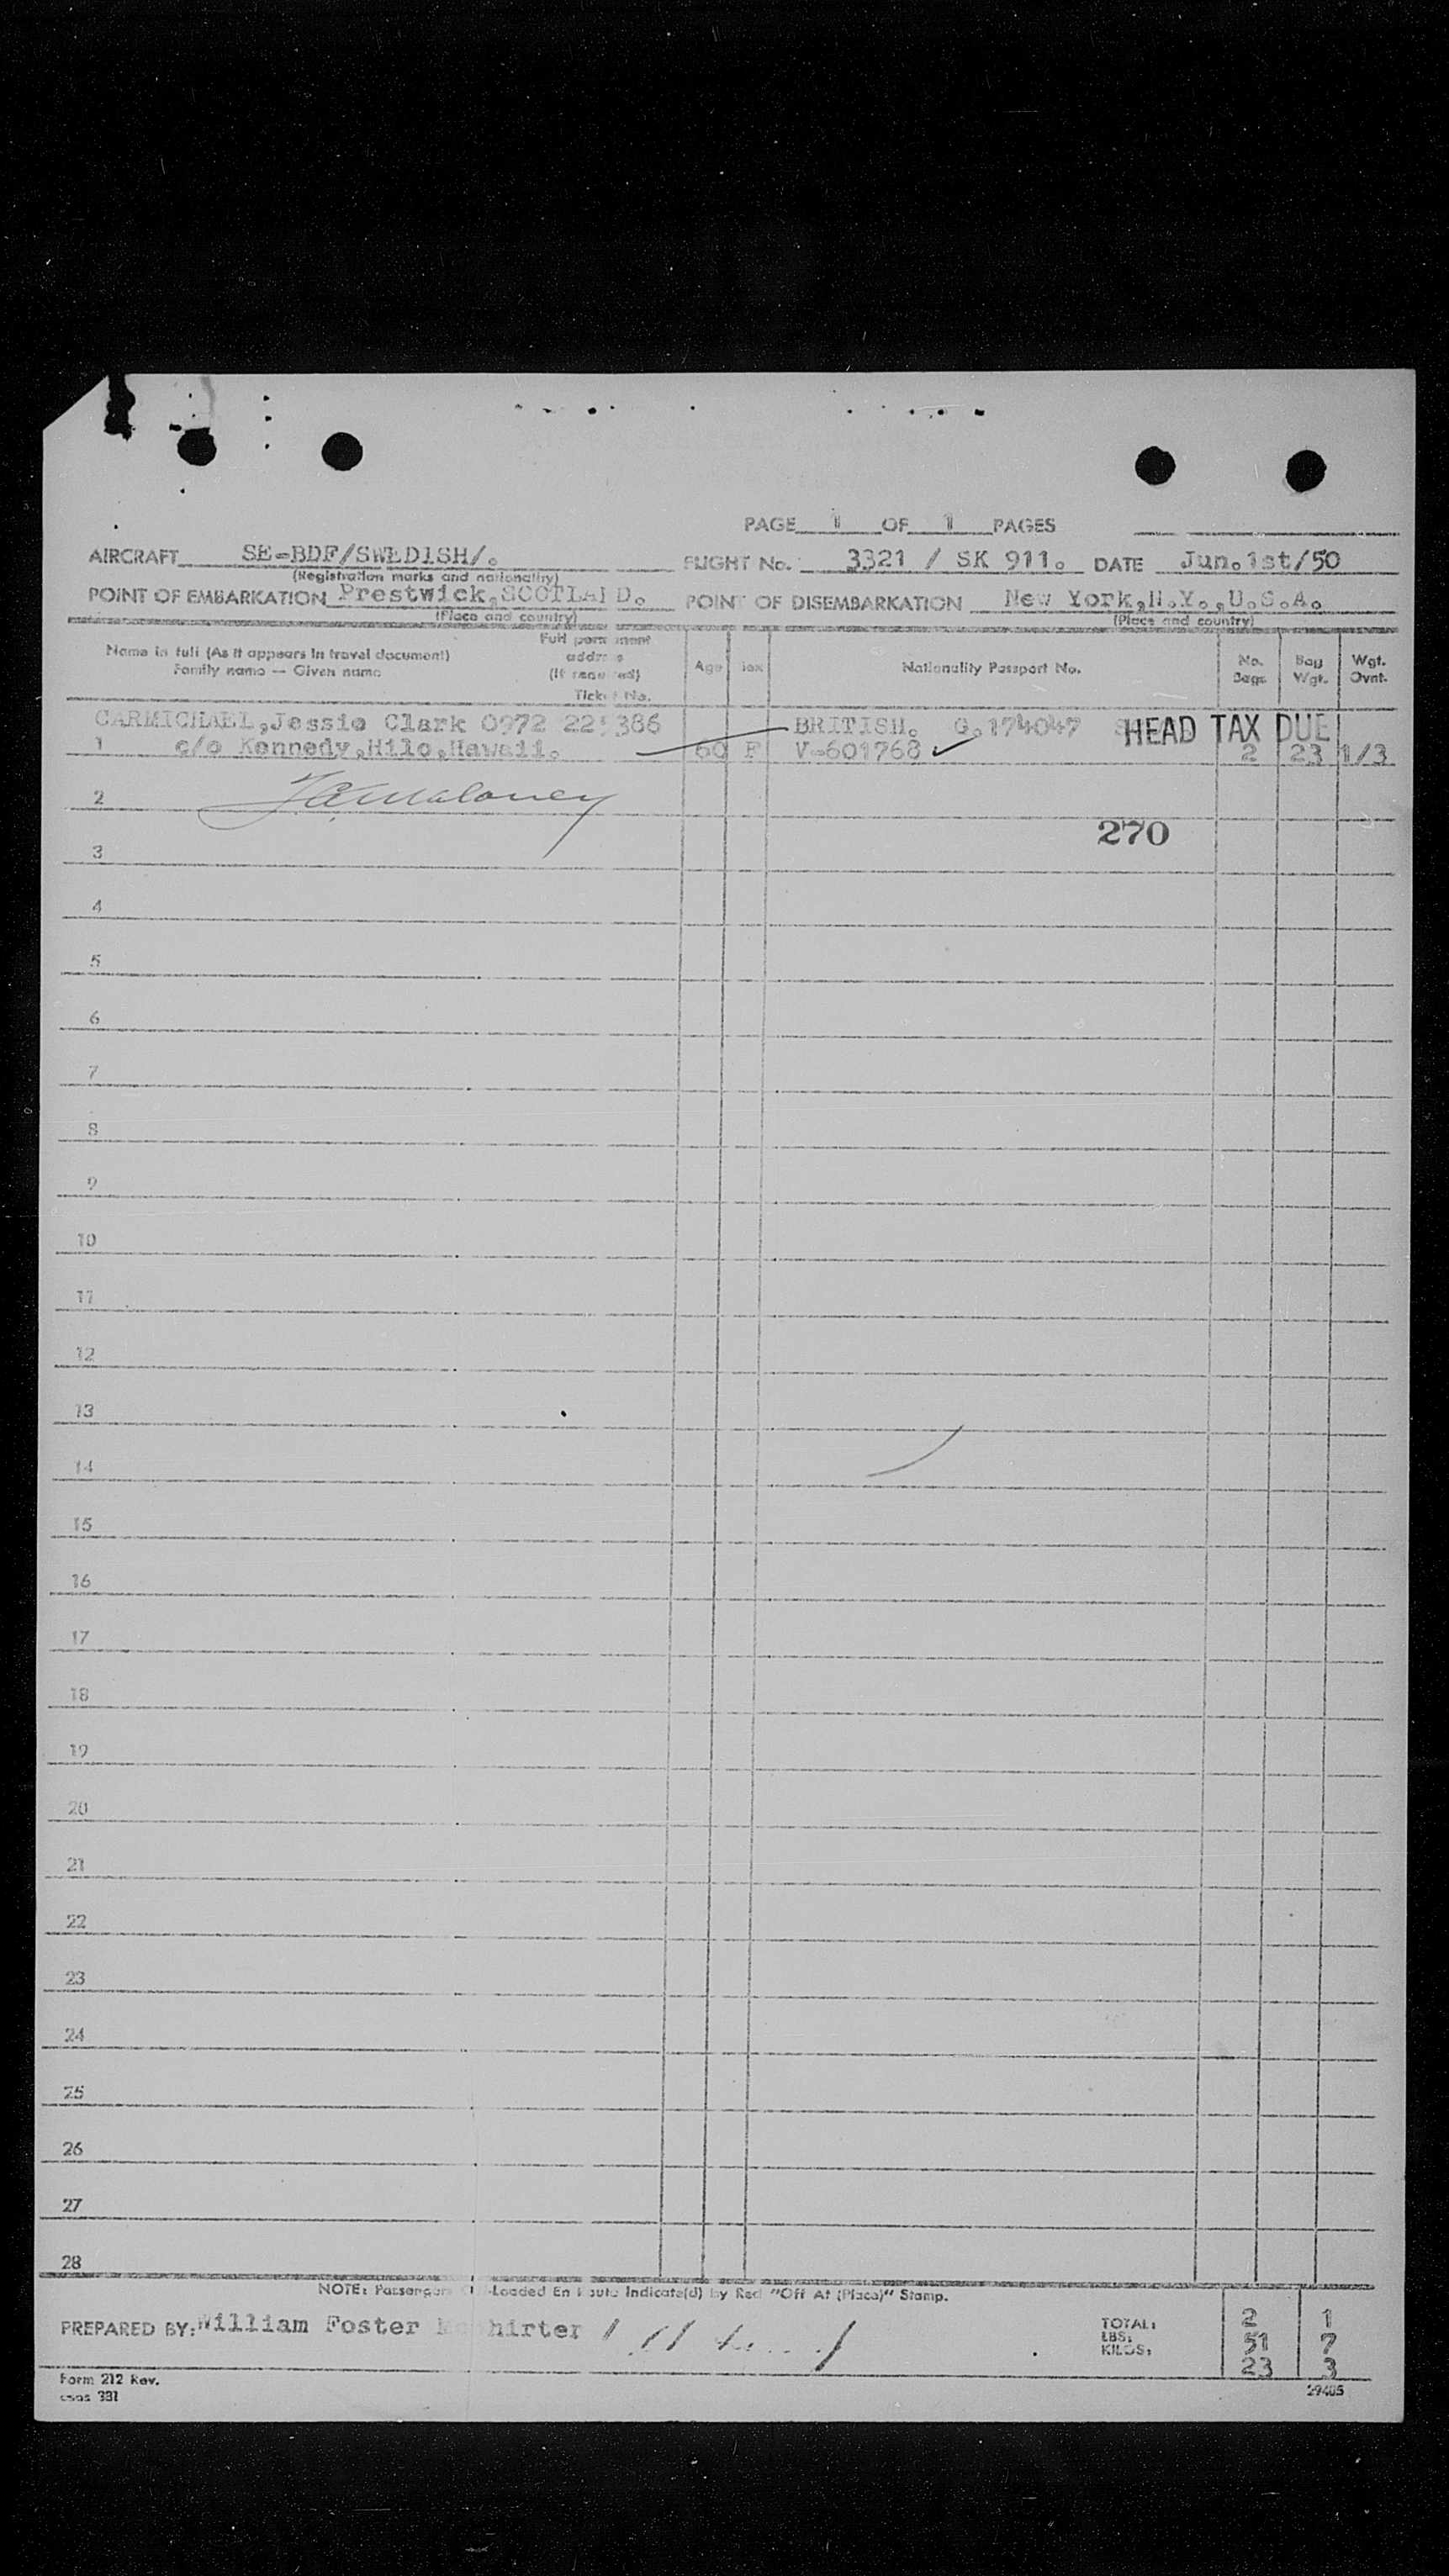 PAGE 1 OF 1 PAGES
AIRCRAFT SE-BDF/SWEDISH/.
(Registration marks and nationality)
FLIGHT No. 3321 / SK 911. DATE Jun.1st/50
POINT OF EMBARKATION Prestwick,SCOTLAND.
(Place and country)
POINT OF DISEMBARKATION New York,N.Y.,U.S.A.
(Place and country)
Name in full (As it appears in travel document)
Family name — Given name
Full permanent
address
(If required)
Ticket No.
Age
Sex
Nationality Passport No.
No.
Bags
Bag
Wgt.
Wgt.
Ovnt.
CARMICHAEL,Jessie Clark 0972 22 386 BRITISH. G.174047 HEAD TAX DUE
1 c/o Kennedy,Hilo,Hawaii. 60 F V-601768 2 23 1/3
2 Maloney
270
3
4
5
6
7
8
9
10
11
12
13
14
15
16
17
18
19
20
21
22
23
24
25
26
27
28
NOTE: Passengers -Loaded En Route Indicate(d) by Red "Off At (Place)" Stamp.
PREPARED BY: William Foster
TOTAL: 2 1
LBS: 51 7
KILOS: 23 3
Form 212 Rev.
331
29405